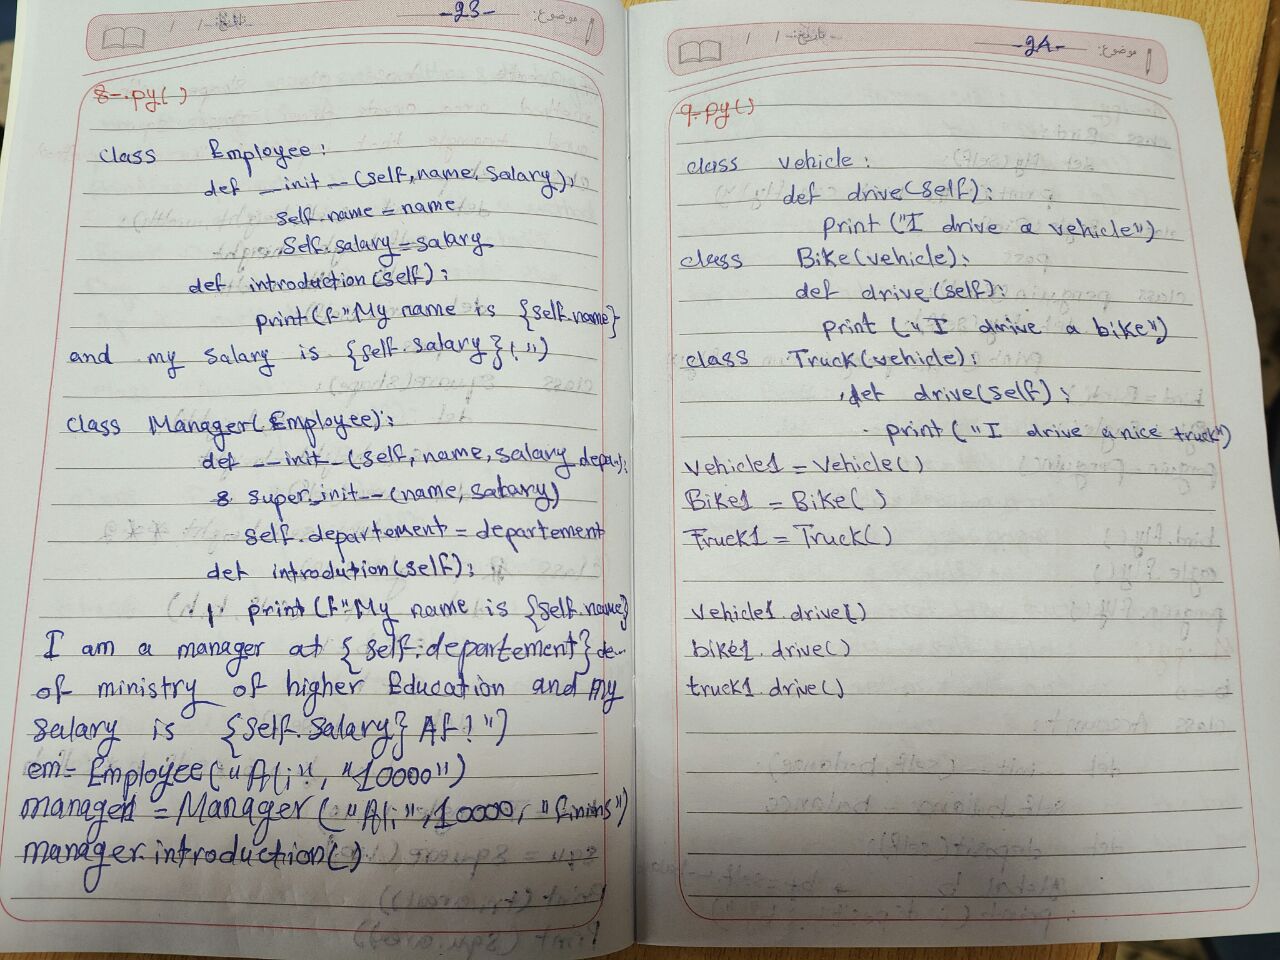 -23-
موضوع:
تاریخ: / /
8-.py()
class Employee:
def __init__(self,name,salary):
self.name=name
self.salary=salary
def introduction(self):
print(f"My name is {self.name}
and my salary is {self.salary}!")
class Manager(Employee):
def __init__(self,name,salary,depa.):
super._init__(name,salary)
self.departement=departement
def introdution(self):
print(f"My name is {self.name}
I am a manager at {self.departement}de-
of ministry of higher Education and my
salary is {self.salary} Af!")
em= Employee("Ali", "10000")
manager1 = Manager("Ali",10000, "finins")
manager.introduction()
-24-
موضوع:
تاریخ: / /
9.py()
class vehicle:
def drive(self):
print("I drive a vehicle")
class Bike(vehicle):
def drive(self):
print("I drive a bike")
class Truck(vehicle):
def drive(self):
print("I drive a nice truck")
vehicle1=Vehicle()
Bike1 = Bike()
Truck1=Truck()
vehicle1.drive()
bike1.drive()
truck1.drive()